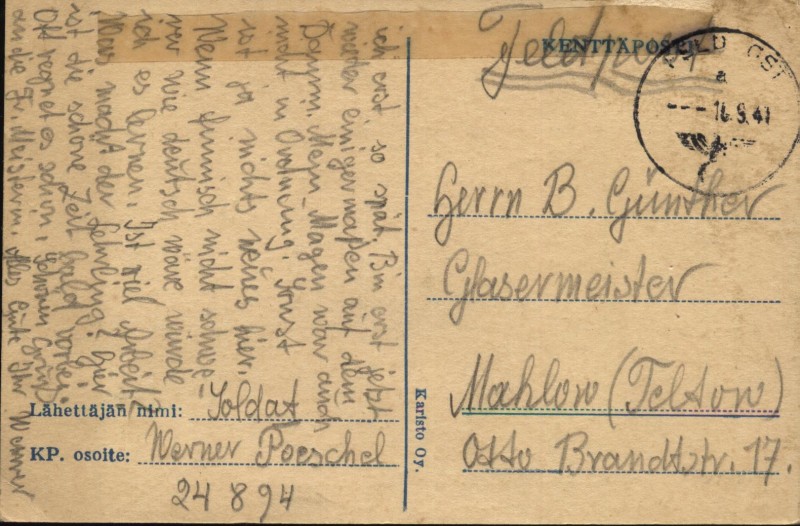 KENTTÄPOSTI
Feldpost
FELDPOST
a
--- 16.9.41
Herrn B. Günther
Glasermeister
Mahlow (Teltow)
Otto Brandtstr. 17.
Karisto Oy.
Lähettäjän nimi: Soldat
KP. osoite: Werner Poeschel
24894
ich erst so spät. Bin erst jetzt
wieder einigermaßen auf dem
Damm. Mein Magen war auch
nicht in Ordnung. Sonst
ist ja nichts neues hier.
Wenn finnisch nicht schwe
rer wie deutsch wäre würde
ich es lernen. Ist viel Arbeit
Was macht der Lehrling? Hier
ist die schöne Zeit bald vorbei.
Oft regnet es schon. Schönen Gruß
an die Fr. Meisterin. Alles Gute Ihr Werner